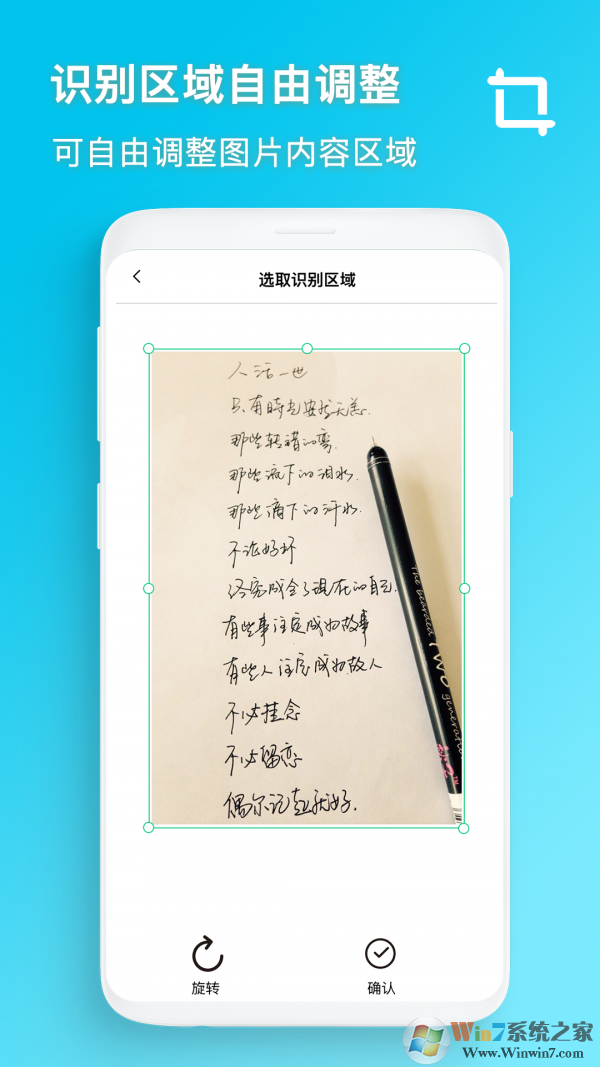 识别区域自由调整
可自由调整图片内容区域
选取识别区域
人活一世
只有時光安然无恙.
那些转错的弯.
那些流下的泪水.
那些滴下的汗水
不论好坏
终究成全了现在的自己.
有些事注定成为故事
有些人注定成为故人
不必挂念
不必留恋
偶尔记起就好.
The bearded
TWO
generation
旋转
确认
Win7系统之家
Www.Winwin7.com